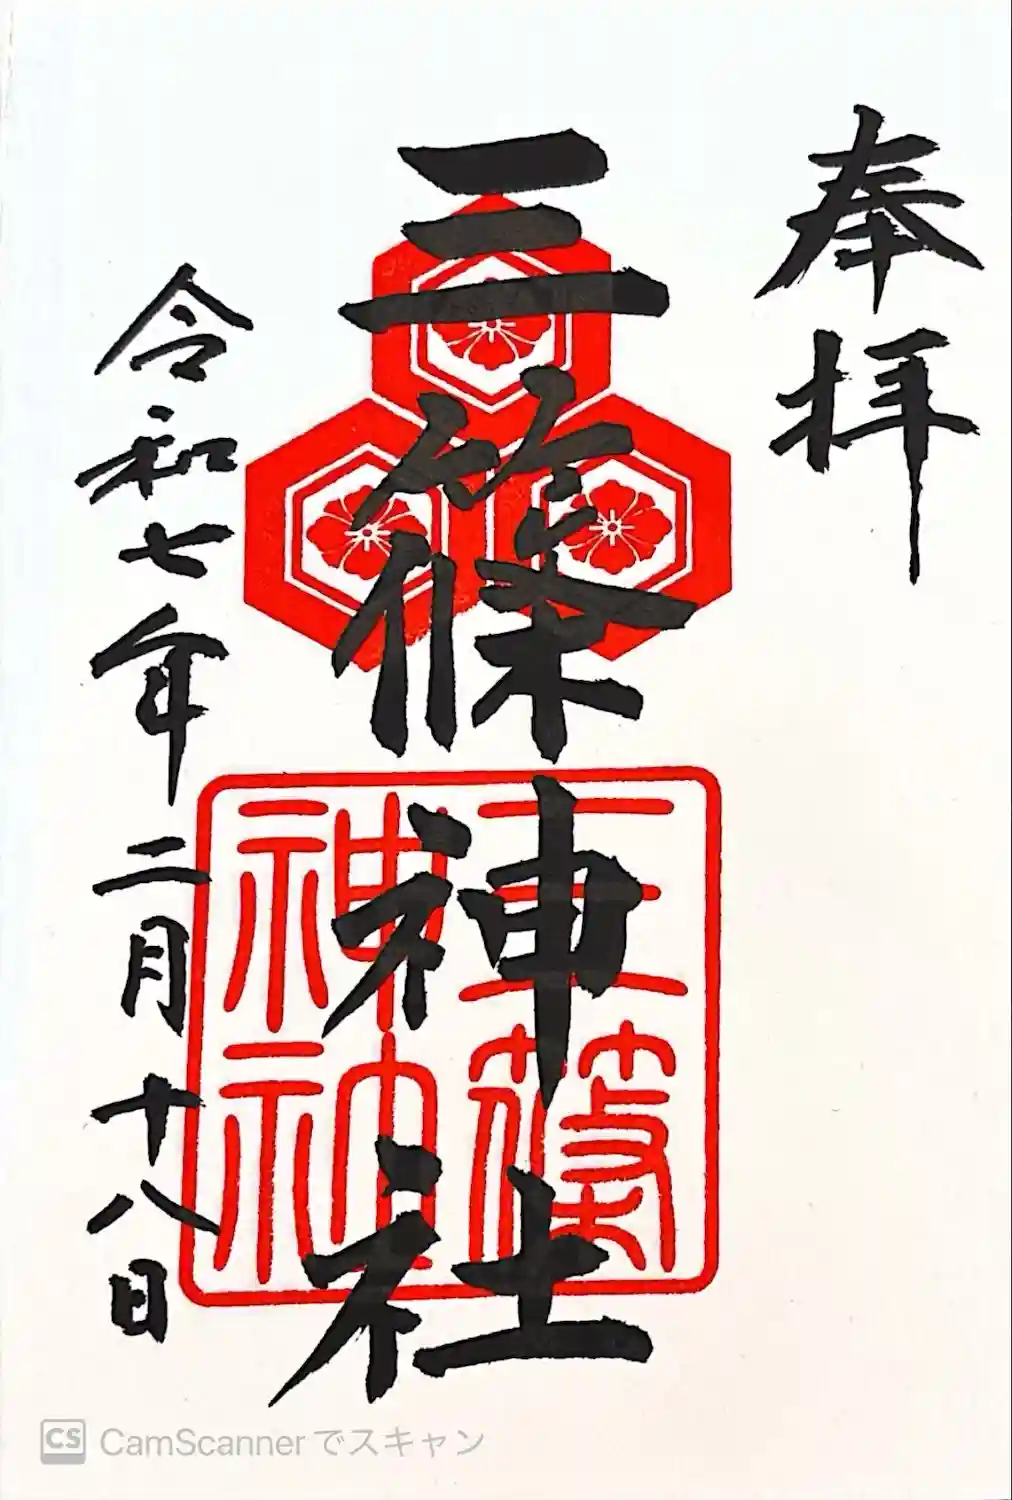 奉拝
三篠神社
三篠神社
令和七年二月十八日
CS CamScannerでスキャン